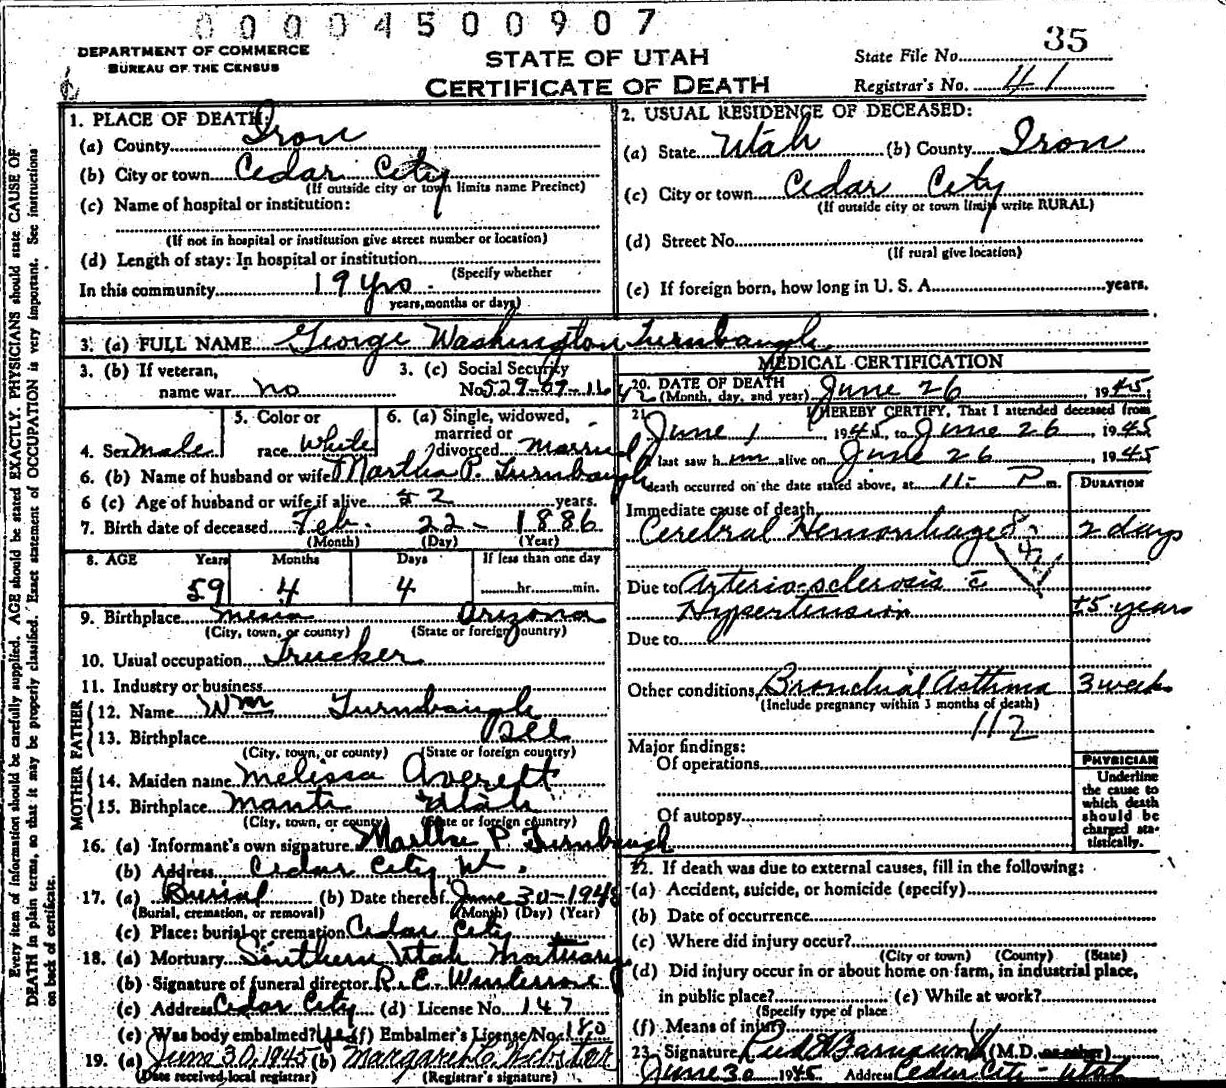 00004500907
DEPARTMENT OF COMMERCE
BUREAU OF THE CENSUS
STATE OF UTAH
CERTIFICATE OF DEATH
State File No. 35
Registrar's No. 41
1. PLACE OF DEATH:
(a) County Iron
(b) City or town Cedar City
(If outside city or town limits name Precinct)
(c) Name of hospital or institution:
(If not in hospital or institution give street number or location)
(d) Length of stay: In hospital or institution
(Specify whether
In this community 19 yrs.
years, months or days)
2. USUAL RESIDENCE OF DECEASED:
(a) State Utah (b) County Iron
(c) City or town Cedar City
(If outside city or town limits write RURAL)
(d) Street No.
(If rural give location)
(e) If foreign born, how long in U. S. A. years.
3. (a) FULL NAME George Washington Turnbaugh
3. (b) If veteran, name war no
3. (c) Social Security No. 529-09-1642
4. Sex male
5. Color or race White
6. (a) Single, widowed, married or divorced married
6. (b) Name of husband or wife Martha P. Turnbaugh
6 (c) Age of husband or wife if alive 52 years.
7. Birth date of deceased Feb. 22 - 1886
(Month) (Day) (Year)
8. AGE Years Months Days If less than one day
59 4 4 hr. min.
9. Birthplace Mesa Arizona
(City, town, or county) (State or foreign country)
10. Usual occupation Trucker
11. Industry or business
FATHER
12. Name Wm Turnbaugh
13. Birthplace Ill
(City, town, or county) (State or foreign country)
MOTHER
14. Maiden name Melissa Averett
15. Birthplace Manti Utah
(City, town, or county) (State or foreign country)
16. (a) Informant's own signature Martha P Turnbaugh
(b) Address Cedar City Ut.
17. (a) Burial (b) Date thereof June 30-1945
(Burial, cremation, or removal) (Month) (Day) (Year)
(c) Place: burial or cremation Cedar City
18. (a) Mortuary Southern Utah Mortuary
(b) Signature of funeral director R. E.
(c) Address Cedar City (d) License No. 147
(e) Was body embalmed? Yes (f) Embalmer's License No. 180
19. (a) June 30, 1945 (b) Margaret C. Webster
(Date received local registrar) (Registrar's signature)
MEDICAL CERTIFICATION
20. DATE OF DEATH June 26, 1945
(Month, day, and year)
21. I HEREBY CERTIFY, That I attended deceased from
June 1, 1945, to June 26, 1945
I last saw him alive on June 26, 1945
death occurred on the date stated above, at 11:- P m.
DURATION
Immediate cause of death
Cerebral Hemorrhage 2 days
Due to Arterio-sclerosis c̄
Hypertension 15 years
Due to
Other conditions Bronchial Asthma 3 weeks
(Include pregnancy within 3 months of death)
112
Major findings:
Of operations
Of autopsy
PHYSICIAN
Underline
the cause to
which death
should be
charged sta-
tistically.
22. If death was due to external causes, fill in the following:
(a) Accident, suicide, or homicide (specify)
(b) Date of occurrence
(c) Where did injury occur?
(City or town) (County) (State)
(d) Did injury occur in or about home on farm, in industrial place,
in public place? (e) While at work?
(Specify type of place
(f) Means of injury
23. Signature (M.D. or other)
June 30 1945 Address Cedar City - Utah
Every item of information should be carefully supplied. AGE should be stated EXACTLY. PHYSICIANS should state CAUSE OF
DEATH in plain terms, so that it may be properly classified. Exact statement of OCCUPATION is very important. See instructions
on back of certificate.